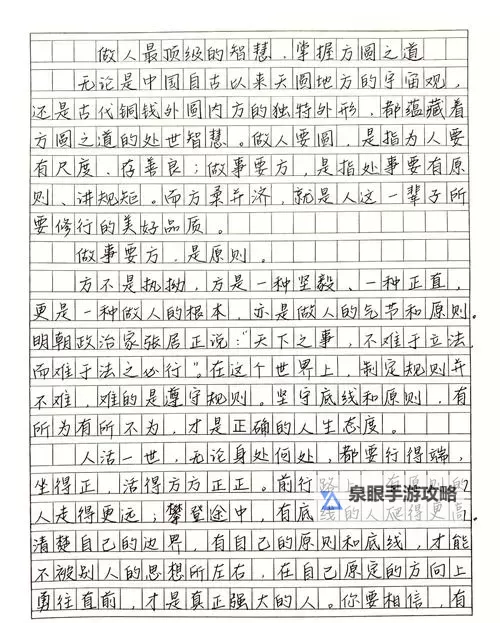 做人最顶级的智慧，掌握方圆之道
无论是中国自古以来天圆地方的宇宙观，
还是古代铜钱外圆内方的独特外形，都蕴藏着
方圆之道的处世智慧。做人要圆，是指为人要
有尺度、存善良；做事要方，是指处事要有原
则、讲规矩。而方柔并济，就是人这一辈子所
要修行的美好品质。
做事要方，是原则。
方不是执拗，方是一种坚毅、一种正直，
更是一种做人的根本，亦是做人的气节和原则。
明朝政治家张居正说：“天下之事，不难于立法，
而难于法之必行”。在这个世界上，制定规则并
不难，难的是遵守规则。坚守底线和原则，有
所为有所不为，才是正确的人生态度。
人活一世，无论身处何处，都要行得端，
坐得正，活得方方正正。前行路上，有原则的
人走得更远；攀登途中，有底线的人爬得更高。
清楚自己的边界，有自己的原则和底线，才能
不被别人的思想所左右，在自己原定的方向上
勇往直前，才是真正强大的人。你要相信，有
泉眼手游攻略